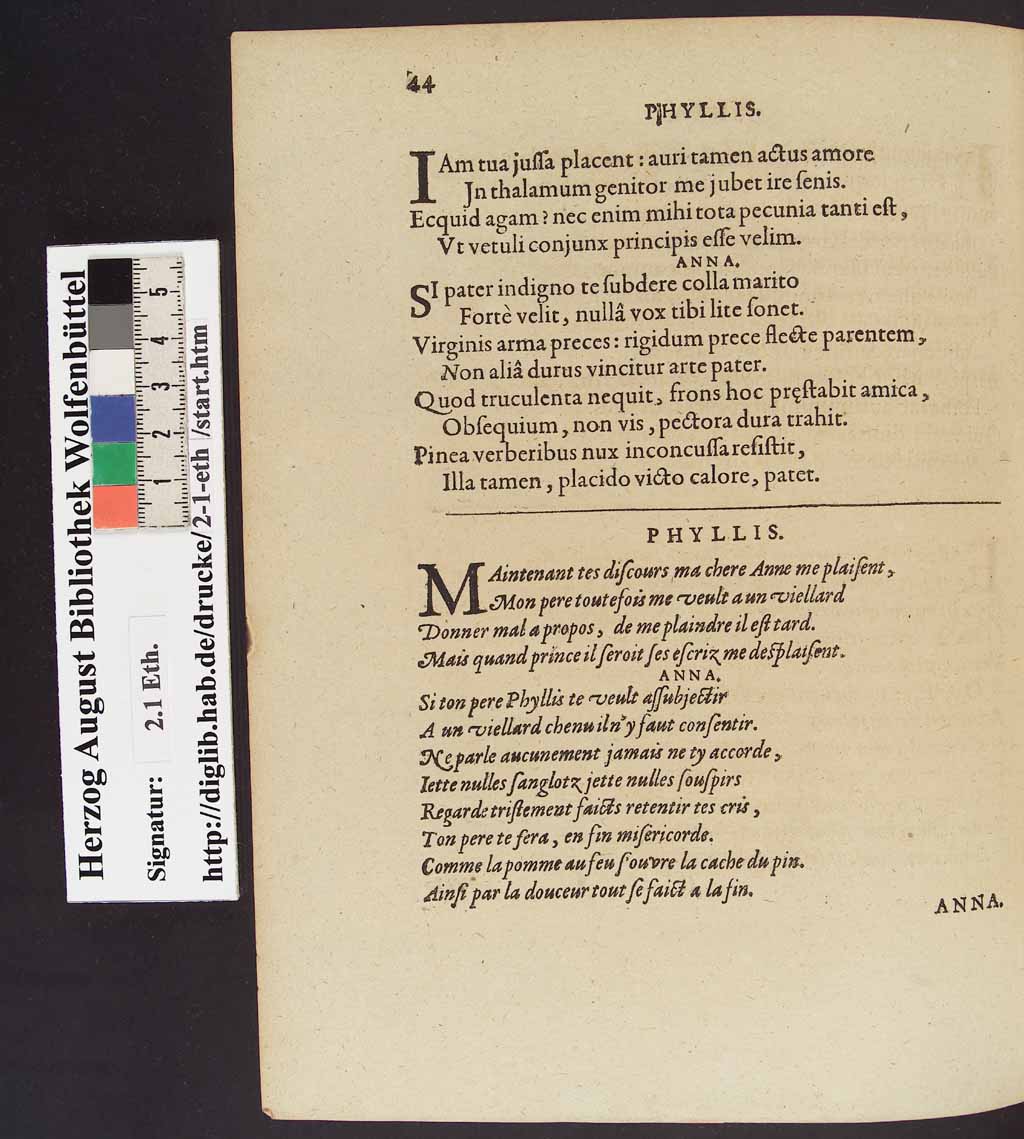 44
PHYLLIS.
IAm tua juſſa placent : auri tamen actus amore
Jn thalamum genitor me jubet ire ſenis.
Ecquid agam ? nec enim mihi tota pecunia tanti eſt ,
Vt vetuli conjunx principis eſſe velim.
ANNA.
SI pater indigno te ſubdere colla marito
Fortè velit, nullâ vox tibi lite ſonet.
Virginis arma preces : rigidum prece flecte parentem ,
Non aliâ durus vincitur arte pater.
Quod truculenta nequit, frons hoc pręſtabit amica ,
Obſequium, non vis , pectora dura trahit.
Pinea verberibus nux inconcuſſa reſiſtit ,
Illa tamen , placido victo calore, patet.
PHYLLIS.
MAintenant tes diſcours ma chere Anne me plaiſent ,
Mon pere toutefois me veult a un viellard
Donner mal a propos, de me plaindre il eſt tard.
Mais quand prince il ſeroit ſes eſcriz me desplaiſent.
ANNA.
Si ton pere Phyllis te veult aſſubjectir
A un viellard chenu il n'y faut conſentir.
Ne parle aucunement jamais ne ty accorde ,
Iette nulles ſanglotz jette nulles ſouſpirs
Regarde triſtement faicts retentir tes cris ,
Ton pere te fera , en fin miſericorde.
Comme la pomme au feu ſ'ouvre la cache du pin.
Ainſi par la douceur tout ſe faict a la fin.
ANNA.
Herzog August Bibliothek Wolfenbüttel
Signatur: 2.1 Eth.
http://diglib.hab.de/drucke/2-1-eth /start.htm
5
4
3
2
1